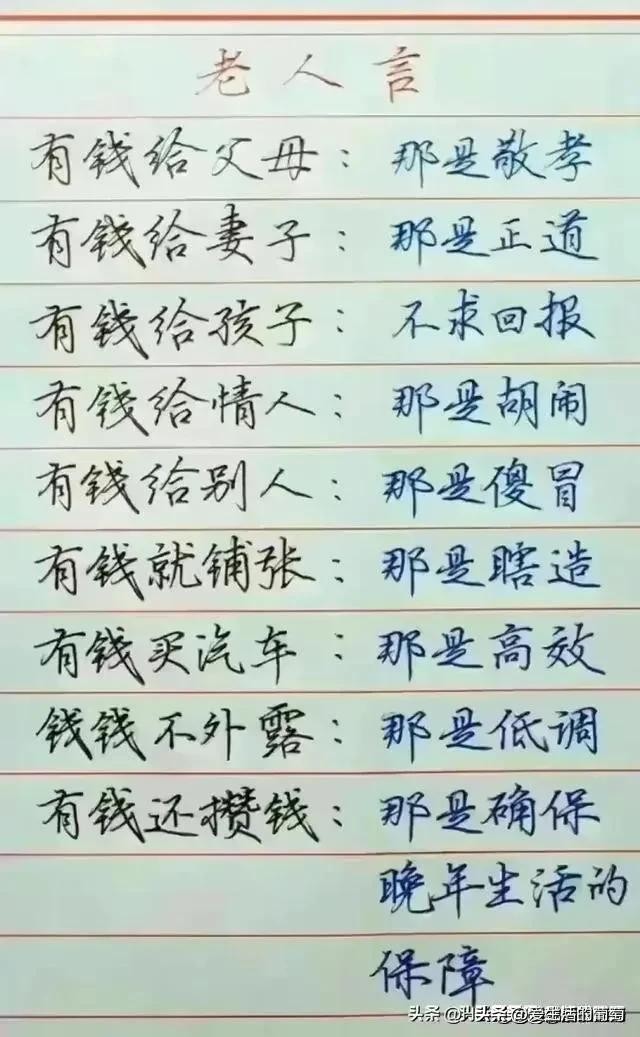 老人言
有钱给父母：那是敬孝
有钱给妻子：那是正道
有钱给孩子：不求回报
有钱给情人：那是胡闹
有钱给别人：那是傻冒
有钱就铺张：那是瞎造
有钱买汽车：那是高效
钱钱不外露：那是低调
有钱还攒钱：那是确保
晚年生活的
保障
头条 @爱生活的葡萄